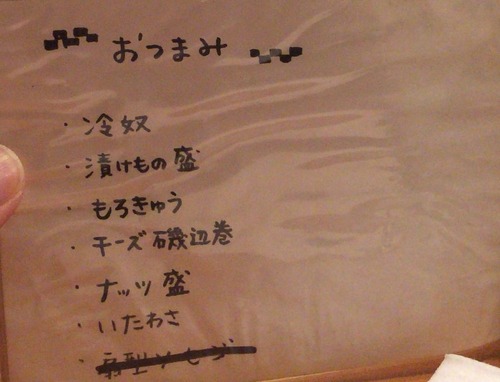 おつまみ
・冷奴
・漬けもの盛
・もろきゅう
・チーズ磯辺巻
・ナッツ盛
・いたわさ